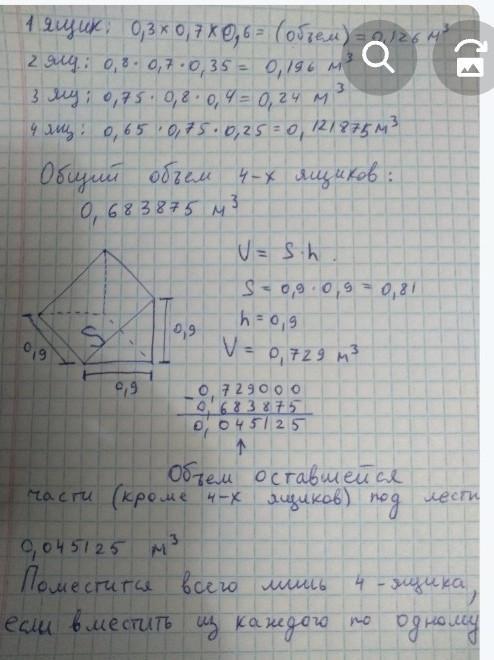 1 ящик: 0,3 x 0,7 x 0,6 = (объем) = 0,126 м³
2 ящ: 0,8 · 0,7 · 0,35 = 0,196 м³
3 ящ; 0,75 · 0,8 · 0,4 = 0,24 м³
4 ящ: 0,65 · 0,75 · 0,25 = 0,121875 м³
Общий объем 4-х ящиков:
0,683875 м³
V = S·h.
S = 0,9 · 0,9 = 0,81
h = 0,9
V = 0,729 м³
S
0,9
0,9
0,9
- 0,729000
0,683875
0,045125
Объем оставшейся
части (кроме 4-х ящиков) под лестн
0,045125 м³
Поместится всего лишь 4-ящика,
если вместить из каждого по одному